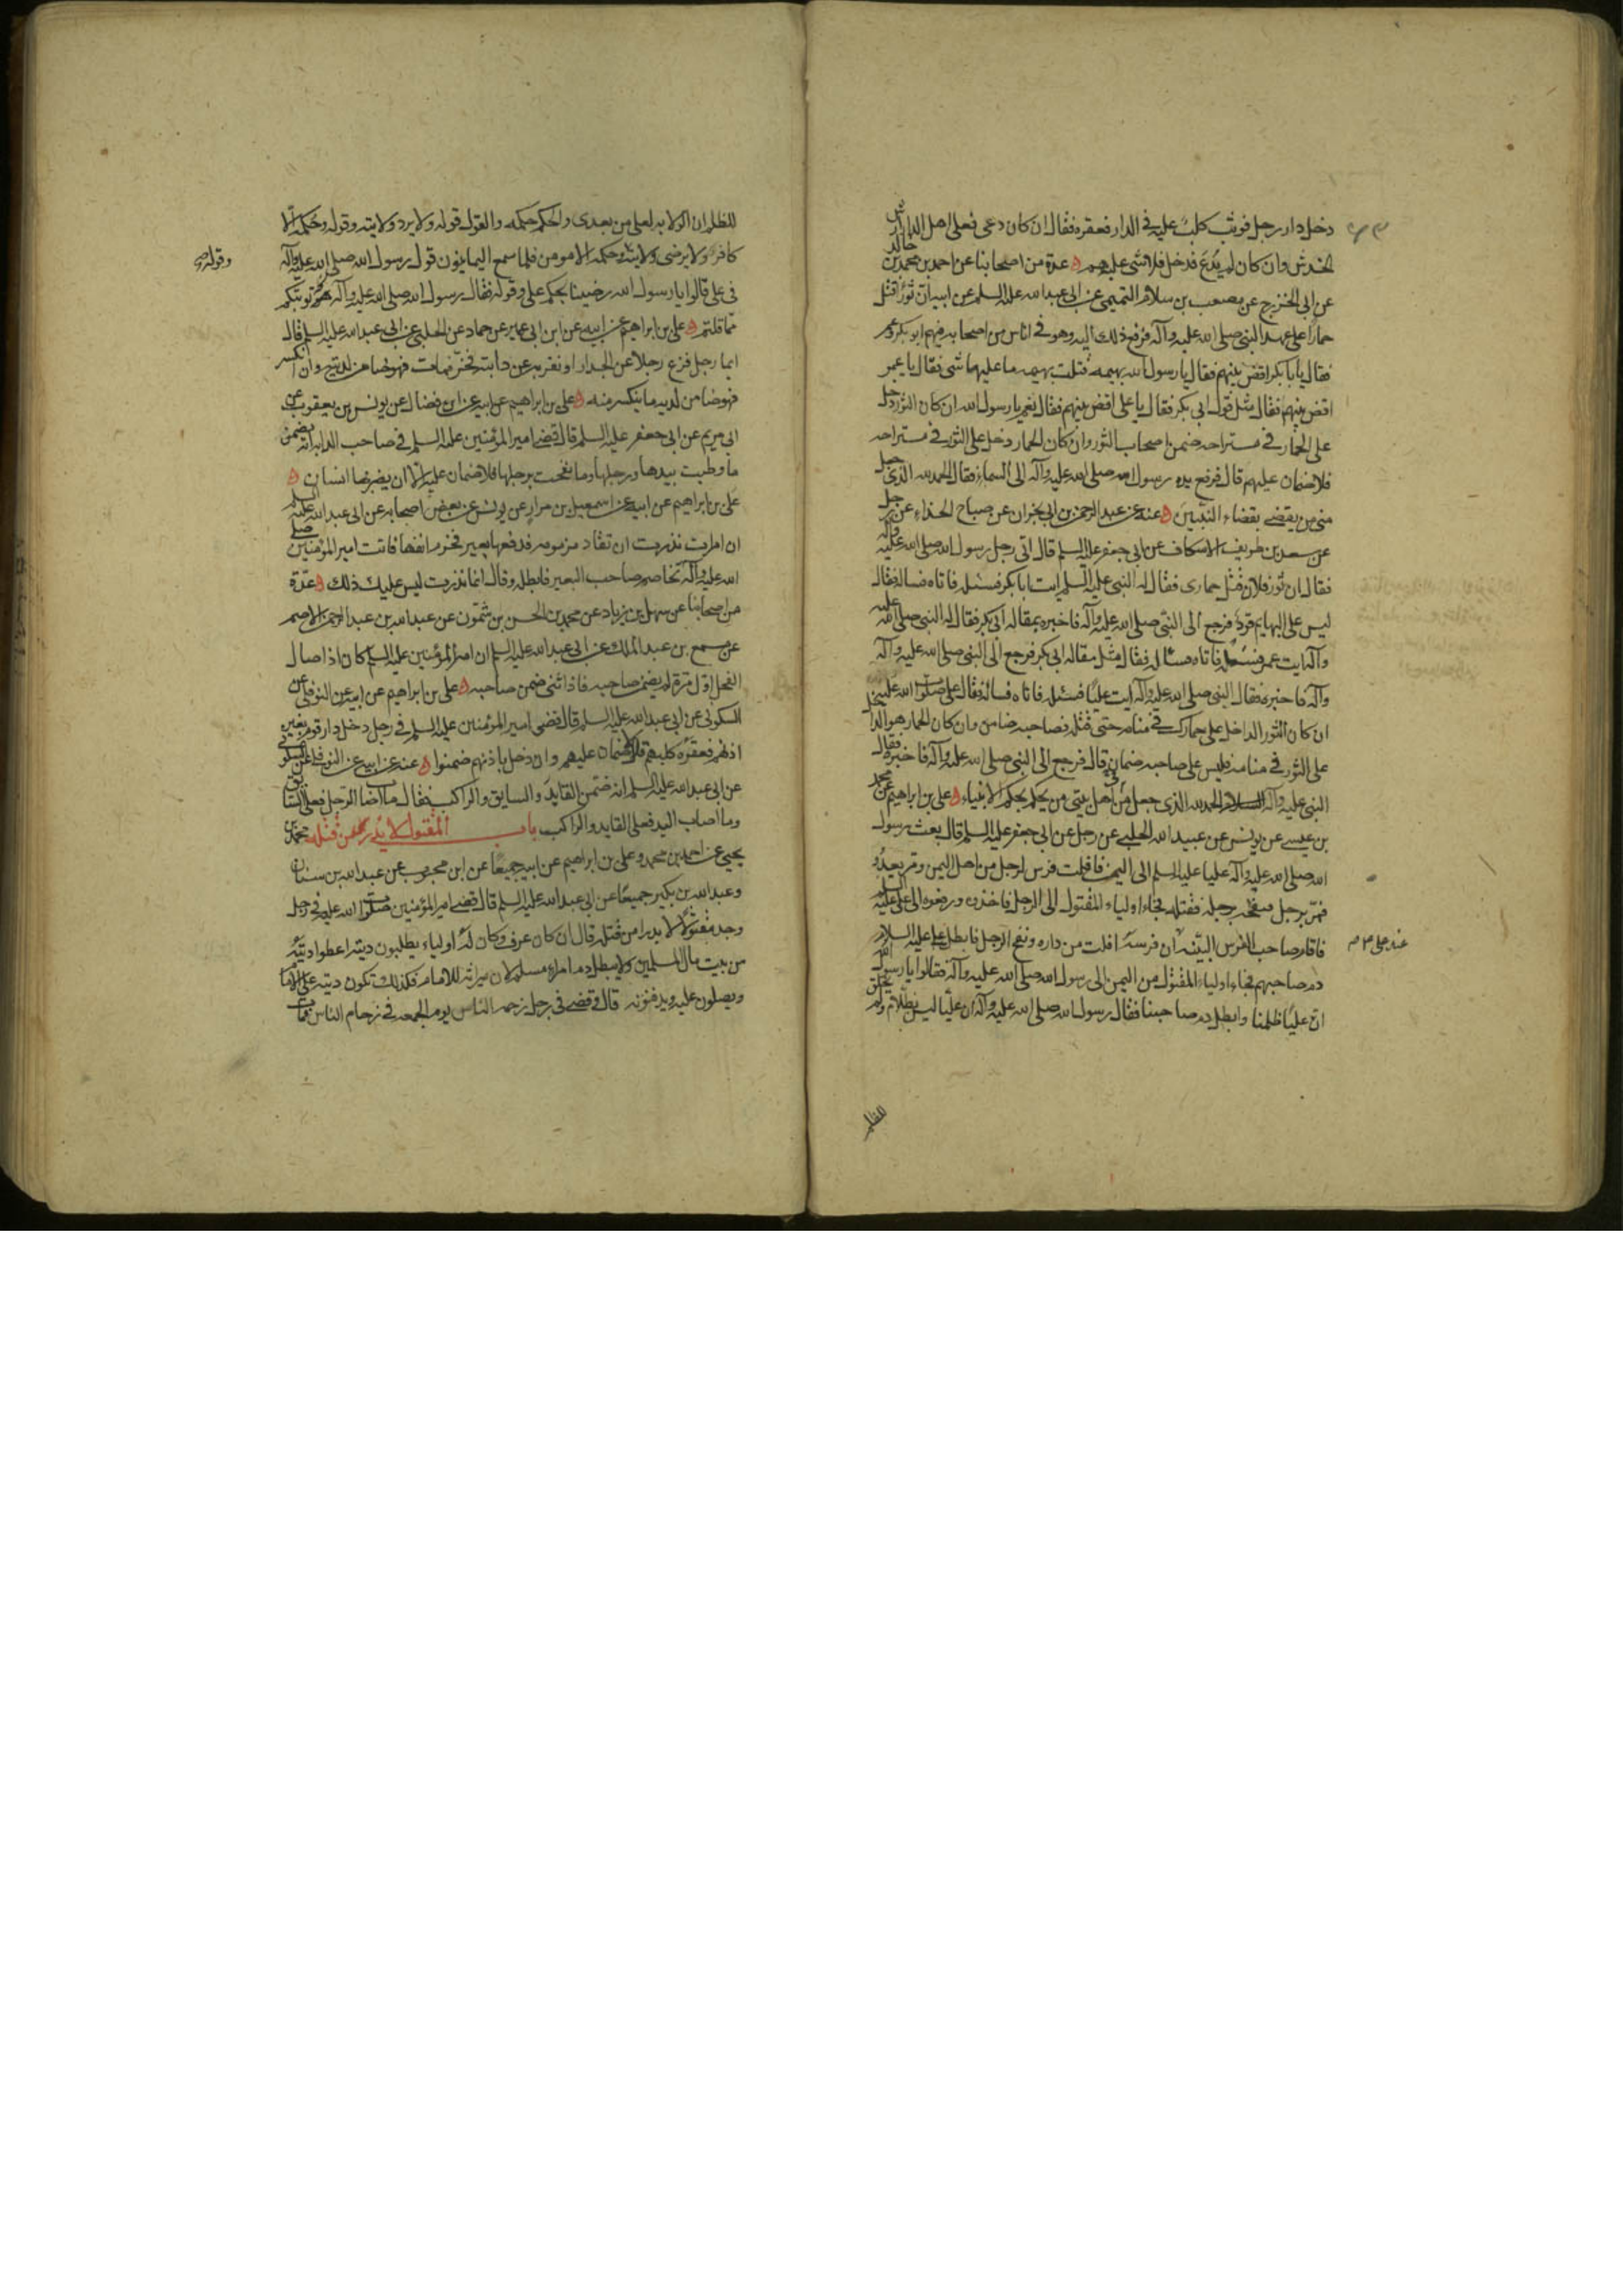 دخل دار رجل فوثب كلب عليه في الدار فعقره فقال ان كان دعى فعلى اهل الدار ارش
الخدش وان كان لم يدع فدخل فلا شى عليهم عدة من اصحابنا عن احمد بن محمد بن خالد
عن ابى الخزرج عن مصعب بن سلام التميمى عن ابى عبد الله عليه السلم عن ابيه ان ثورا قتل
حمارا على عهد النبى صلى الله عليه وآله فرفع ذلك اليه وهو فى اناس من اصحابه فيهم ابو بكر وعمر
فقال يا با بكر اقض بينهم فقال يا رسول الله بهيمه قتلت بهيمه ما عليهما شى فقال يا عمر
اقض بينهم فقال مثل قول ابى بكر فقال يا على اقض بينهم فقال نعم يا رسول الله ان كان الثور دخل
على الحمار فى مستراحه ضمن اصحاب الثور وان كان الحمار دخل على الثور فى مستراحه
فلا ضمان عليهم قال فرفع يده رسول الله صلى الله عليه وآله الى السماء فقال الحمد لله الذى جعل
منى من يقضى بقضاء النبيين عنه عن عبد الرحمن بن ابى نجران عن صباح الحذاء عن رجل
عن سعد بن طريف الاسكاف عن ابى جعفر عليه السلم قال اتى رجل رسول الله صلى الله عليه وآله
فقال ان ثور فلان قتل حمارى فقال له النبى عليه السلم ايت ابا بكر فسئله فاتاه فساله فقال
ليس على البهايم قود فرجع الى النبى صلى الله عليه وآله فاخبره بمقاله ابى بكر فقال له النبى صلى الله عليه
وآله ايت عمر فسئله فاتاه فساله فقال مثل مقاله ابى بكر فرجع الى النبى صلى الله عليه وآله
وآله فاخبره فقال النبى صلى الله عليه وآله ايت عليا فسئله فاتاه فساله فقال على صلوات الله عليه
ان كان الثور الداخل على حمارك فى منامه حتى قتله فصاحبه ضامن وان كان الحمار هو الداخل
على الثور فى منامه فليس على صاحبه ضمان قال فرجع الى النبى صلى الله عليه وآله فاخبره فقال
النبى عليه وآله السلام الحمد لله الذى جعل من اهل بيتى من يحكم بحكم الانبياء على بن ابراهيم عن محمد
بن عيسى عن يونس عن عبيد الله الحلبى عن رجل عن ابى جعفر عليه السلم قال بعث رسول
الله صلى الله عليه وآله عليا عليه السلم الى اليمن فافلت فرس لرجل من اهل اليمن ومر يعدو
فمر برجل فنفحه برجله فقتله فجاء اولياء المقتول الى الرجل فاخذوه ورفعوه الى على عليه السلم
فاقام صاحب الفرس البينه ان فرسه افلت من داره ونفح الرجل فابطل على عليه السلام
دم صاحبهم فجاء اولياء المقتول من اليمن الى رسول الله صلى الله عليه وآله فقالوا يا رسول الله
ان عليا ظلمنا وابطل دم صاحبنا فقال رسول الله صلى الله عليه وآله ان عليا ليس بظلام ولم يخلق
للظلم
للظلم ان الولايه لعلى من بعدى والحكم حكمه والقول قوله ولا يرد ولايته وقوله وحكمه الا
كافر ولا يرضى ولايته وحكمه الا مومن فلما سمع اليمانيون قول رسول الله صلى الله عليه وآله
وقوله صح
فى على قالوا يا رسول الله رضينا بحكم على وقوله فقال رسول الله صلى الله عليه وآله هو توبتكم
مما قلتم على بن ابراهيم عن ابيه عن ابن ابى عمير عن حماد عن الحلبى عن ابى عبد الله عليه السلم قال
ايما رجل فزع رجلا عن الجدار او نفر به عن دابته فخر فمات فهو ضامن لديته وان انكسر
فهو ضامن لديه ما ينكسر منه على بن ابراهيم عن ابيه عن ابن فضال عن يونس بن يعقوب عن
ابى مريم عن ابى جعفر عليه السلم قال قضى امير المؤمنين عليه السلم فى صاحب الدابه انه يضمن
ما وطيت بيدها ورجلها وما نفحت برجلها فلا ضمان عليه الا ان يضربها انسان
على بن ابراهيم عن ابيه عن اسمعيل بن مرار عن يونس عن بعض اصحابه عن ابى عبد الله عليه السلم
ان امراة نذرت ان تقاد مزمومه فدفعها بعير فخرم انفها فاتت امير المؤمنين صلى
الله عليه وآله تخاصم صاحب البعير فابطله وقال انما نذرت ليس عليك ذلك عدة
من اصحابنا عن سهل بن زياد عن محمد بن الحسن بن شمون عن عبد الله بن عبد الرحمن الاصم
عن مسمع بن عبد الملك عن ابى عبد الله عليه السلم ان امير المؤمنين عليه السلم كان اذا صال
الفحل اول مرة لم يضمن صاحبه فاذا ثنى ضمن صاحبه على بن ابراهيم عن ابيه عن النوفلى عن
السكونى عن ابى عبد الله عليه السلم قال قضى امير المؤمنين عليه السلم فى رجل دخل دار قوم بغير
اذنهم فعقره كلبهم قال لا ضمان عليهم وان دخل باذنهم ضمنوا عنه عن ابيه عن النوفلى عن السكونى
عن ابى عبد الله عليه السلم انه ضمن القايد والسايق والراكب فقال ما اصاب الرجل فعلى السايق
وما اصاب اليد فعلى القايد والراكب باب المقتول لا يدرى من قتله محمد بن
يحيى عن احمد بن محمد وعلى بن ابراهيم عن ابيه جميعا عن ابن محبوب عن عبد الله بن سنان
وعبد الله بن بكير جميعا عن ابى عبد الله عليه السلم قال قضى امير المؤمنين صلوات الله عليه فى رجل
وجد مقتولا لا يدرا من قتله قال ان كان عرف وكان له اولياء يطلبون ديته اعطوا ديته
من بيت مال المسلمين ولا يبطل دم امراء مسلم لان ميراثه للامام فكذلك تكون ديته على الامام
ويصلون عليه ويدفنونه قال وقضى فى رجل زحمه الناس يوم الجمعه فى زحام الناس فمات